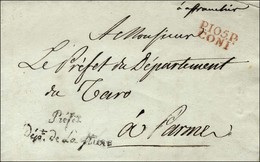 à affranchir
P.105.P.
CONI
A Monsieur
Le Préfet du Département
du Taro
Préfet
Dépt. de La Sture
à Parme